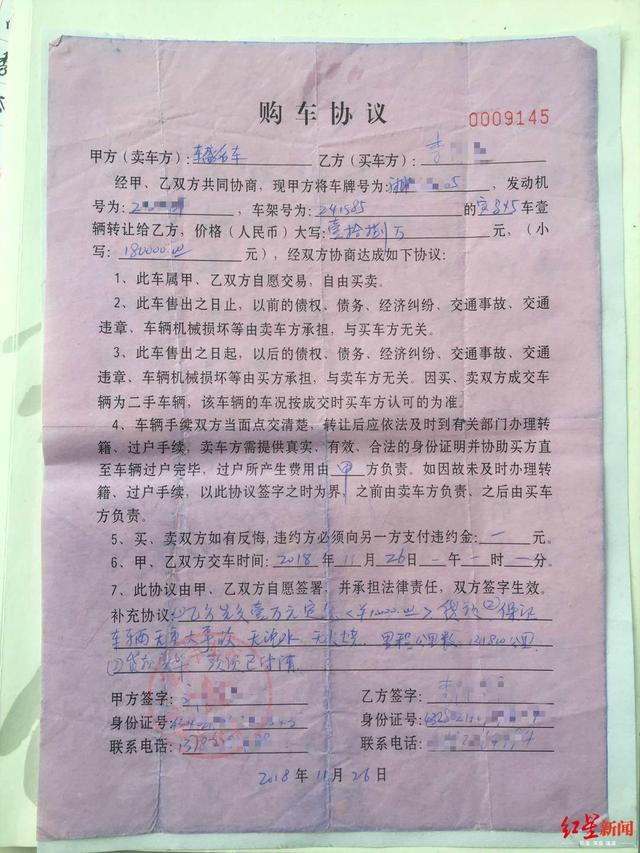 购车协议
0009145
甲方（卖车方）： 乙方（买车方）：李
经甲、乙双方共同协商，现甲方将车牌号为：湘 05，发动机
号为：2 ，车架号为：241585 的宝马X5车壹
辆转让给乙方，价格（人民币）大写：壹拾捌万 元，（小
写：180000.00 元），经双方协商达成如下协议：
1、此车属甲、乙双方自愿交易，自由买卖。
2、此车售出之日止，以前的债权、债务、经济纠纷、交通事故、交通
违章、车辆机械损坏等由卖车方承担，与买车方无关。
3、此车售出之日起，以后的债权、债务、经济纠纷、交通事故、交通
违章、车辆机械损坏等由买方承担，与卖车方无关。因买、卖双方成交车
辆为二手车辆，该车辆的车况按成交时买车方认可的为准。
4、车辆手续双方当面点交清楚，转让后应依法及时到有关部门办理转
籍、过户手续，卖车方需提供真实、有效、合法的身份证明并协助买方直
至车辆过户完毕，过户所产生费用由 甲 方负责。如因故未及时办理转
籍、过户手续，以此协议签字之时为界，之前由卖车方负责、之后由买车
方负责。
5、买、卖双方如有反悔，违约方必须向另一方支付违约金：一 元。
6、甲、乙双方交车时间：2018 年 11 月 26 日 一 午 一 时 一 分。
7、此协议由甲、乙双方自愿签署，并承担法律责任，双方签字生效。
补充协议：①乙方先交壹万元定金 ②保证
车辆无重大事故 无泡水 无火烧，里程公里数，131800公里
已付清
甲方签字： 乙方签字：李
身份证号： 身份证号：
联系电话： 联系电话：
2018 年 11 月 26 日
红星新闻